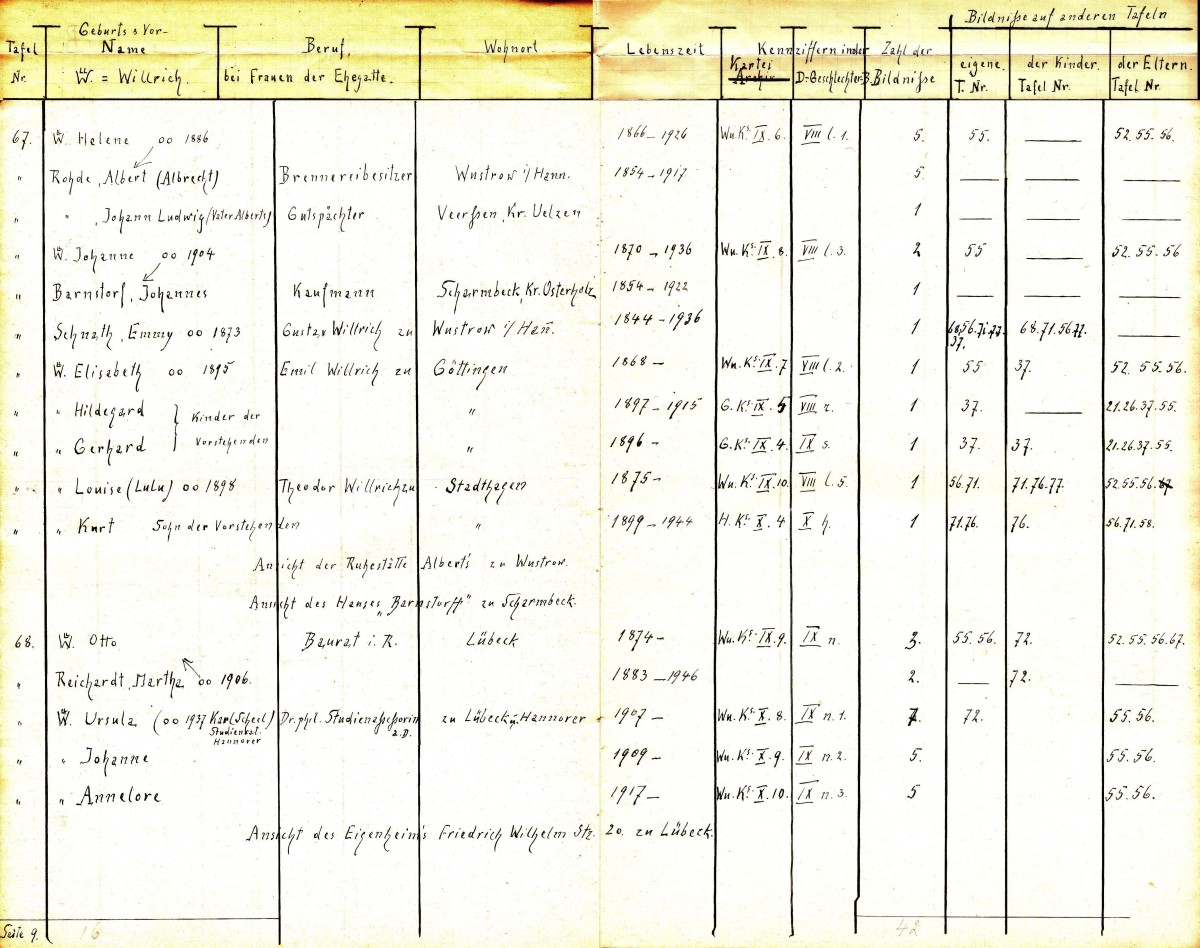 Bildniße auf anderen Tafeln
Tafel Nr. Geburts u Vor- Name W. = Willrich. Beruf, bei Frauen der Ehegatte. Wohnort Lebenszeit Kennziffern in der Kartei Archiv D-Geschlechter-B. Zahl der Bildniße eigene. T. Nr. der Kinder. Tafel Nr. der Eltern. Tafel Nr.
67. W. Helene oo 1886 1866 – 1926 Wu. Ks. IX. 6. VIII l. 1. 5. 55. — 52. 55. 56.
" Rohde, Albert (Albrecht) Brennereibesitzer Wustrow i/Hann. 1854 – 1917 5. — — —
" " , Johann Ludwig (Vater Alberts) Gutspächter Veerßen, Kr. Uelzen 1 — — —
" W. Johanne oo 1904 1870 – 1936 Wu. Ks. IX. 8. VIII l. 3. 2 55 — 52. 55. 56
" Barnstorf, Johannes Kaufmann Scharmbeck, Kr. Osterholz 1854 – 1922 1 — — —
" Schnath, Emmy oo 1873 Gustav Willrich zu Wustrow i/Han. 1844 – 1936 1 68. 56. 71. 77. 37. 68. 71. 56. 77. —
" W. Elisabeth oo 1895 Emil Willrich zu Göttingen 1868 – Wu. Ks. IX. 7 VIII l. 2. 1 55 37. 52. 55. 56.
" " Hildegard } Kinder der " 1897 – 1915 G. Ks. IX. 5 VIII r. 1 37. — 21. 26. 37. 55.
" " Gerhard } Vorstehenden " 1896 – G. Ks. IX. 4. IX s. 1 37. 37. 21. 26. 37. 55.
" " Louise (Lulu) oo 1898 Theodor Willrich zu Stadthagen 1875 – Wu. Ks. IX. 10. VIII l. 5. 1 56. 71. 71. 76. 77. 52. 55. 56. 67
" " Kurt Sohn der Vorstehenden " 1899 – 1944 H. Ks. X. 4 X h. 1 71. 76. 76. 56. 71. 58.
Ansicht der Ruhestätte Albert's zu Wustrow.
Ansicht des Hauses „Barnstorff" zu Scharmbeck.
68. W. Otto Baurat i. R. Lübeck 1874 – Wu. Ks. IX. 9. IX n. 3. 55. 56. 72. 52. 55. 56. 67.
" Reichardt, Martha oo 1906. 1883 – 1946 2. — 72. —
" W. Ursula (oo 1937 Karl Scheel) Studienrat. Hannover Dr. phil. Studienaßeßorin a. D. zu Lübeck u. Hannover 1907 – Wu. Ks. X. 8. IX n. 1. 7. 72. 55. 56.
" " Johanne 1909 – Wu. Ks. X. 9. IX n. 2. 5. 55. 56.
" " Annelore 1917 – Wu. Ks. X. 10. IX n. 3. 5 55. 56.
Ansicht des Eigenheim's Friedrich Wilhelm Stz. 20. zu Lübeck.
Seite 9. 16 42